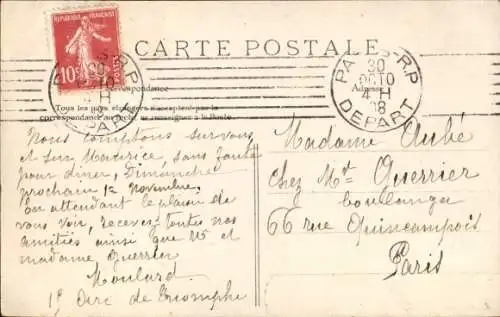 REPUBLIQUE FRANÇAISE
10c
POSTES
CARTE POSTALE
Correspondance
Adresse
Tous les pays étrangers n'acceptent pas la
correspondance au recto, se renseigner à la Poste.
PARIS R.P
30
OCTO
4 H
08
DEPART
Nous comptons sur vous
et sur Maurice, sans faute
pour diner, Dimanche
prochain 1er Novembre.
En attendant le plaisir de
vous voir, recevez toutes nos
amitiés ainsi que Mr et
madame Guerrier
Moulard
1r Arc de Triomphe
Madame Aubé
Chez Mr Guerrier
boulanger
66 rue Quincampoix
Paris